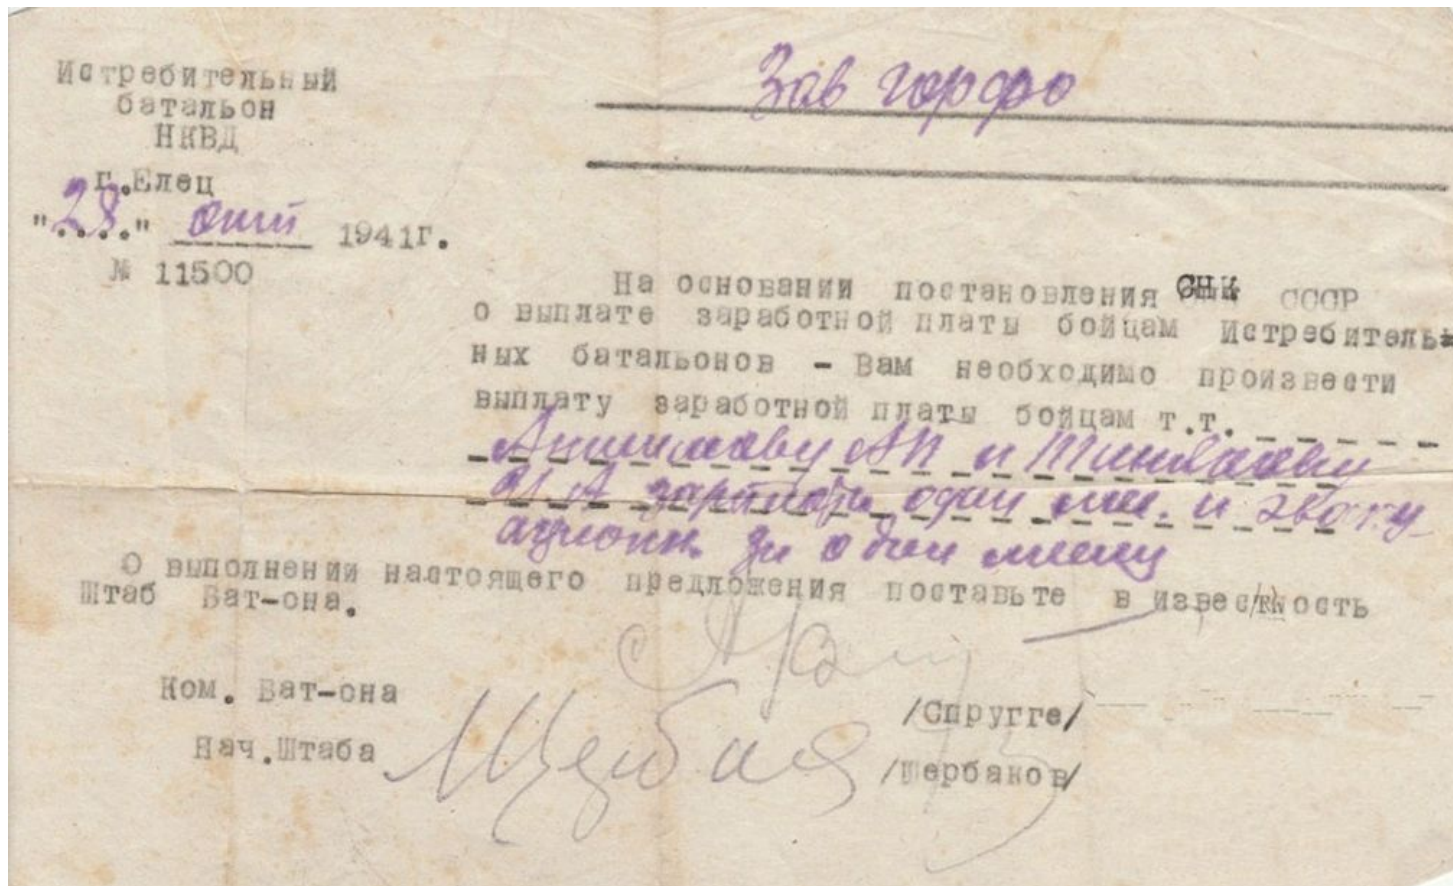 Истребительный
батальон
НКВД
г.Елец
"28" окт 1941г.
№ 11500
Зав горфо
На основании постановления СНК СССР
о выплате заработной платы бойцам Истребитель-
ных батальонов - Вам необходимо произвести
выплату заработной платы бойцам т.т.
АП и
зарплату один мес. и эваку-
ационн. за один месяц
О выполнении настоящего предложения поставьте в известность
Штаб Бат-она.
Ком. Бат-она /Спругге/
Нач.Штаба Щербаков /Щербаков/